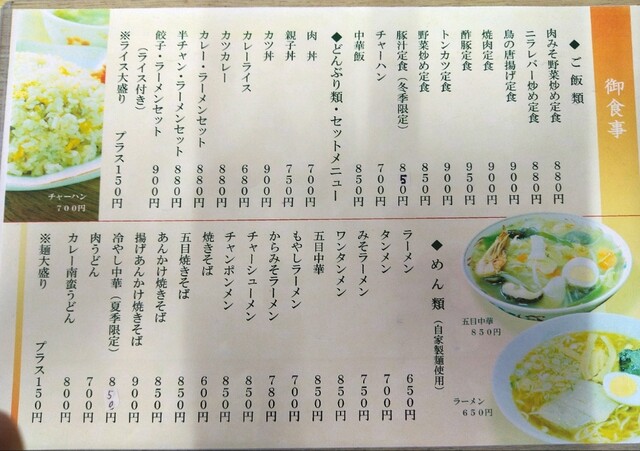 御食事
◆ご飯類
肉みそ野菜炒め定食 880円
ニラレバー炒め定食 880円
鳥の唐揚げ定食 900円
焼肉定食 900円
酢豚定食 950円
トンカツ定食 900円
野菜炒め定食 850円
豚汁定食(冬季限定) 850円
チャーハン 700円
中華飯 850円
◆どんぶり類・セットメニュー
肉丼 700円
親子丼 750円
カツ丼 900円
カレーライス 680円
カツカレー 880円
カレー・ラーメンセット 880円
半チャン・ラーメンセット 880円
餃子・ラーメンセット 900円
(ライス付き)
※ライス大盛り プラス150円
チャーハン
700円
◆めん類(自家製麺使用)
ラーメン 650円
タンメン 700円
みそラーメン 750円
ワンタンメン 850円
五目中華 850円
もやしラーメン 700円
からみそラーメン 780円
チャーシューメン 850円
チャンポンメン 850円
焼きそば 600円
五目焼きそば 850円
あんかけ焼きそば 850円
揚げあんかけ焼きそば 900円
冷やし中華(夏季限定) 850円
肉うどん 700円
カレー南蛮うどん 800円
※麺大盛り プラス150円
五目中華
850円
ラーメン
650円